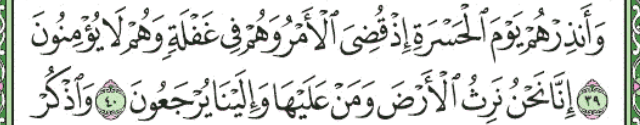 وَأَنذِرْهُمْ يَوْمَ ٱلْحَسْرَةِ إِذْ قُضِىَ ٱلْأَمْرُ وَهُمْ فِى غَفْلَةٍ وَهُمْ لَا يُؤْمِنُونَ
٣٩ إِنَّا نَحْنُ نَرِثُ ٱلْأَرْضَ وَمَنْ عَلَيْهَا وَإِلَيْنَا يُرْجَعُونَ ٤٠ وَٱذْكُرْ